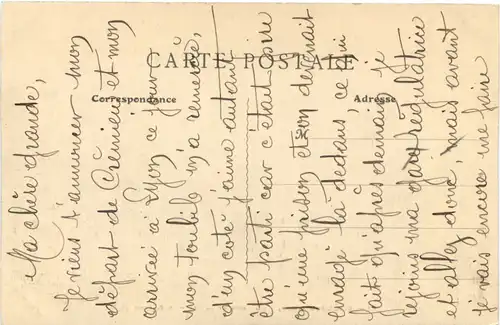 CARTE POSTALE
Correspondance
Adresse
Ma chère grande,
Je viens t'annoncer mon
départ de Crémieu et mon
arrivée à Lyon ce jour
mon toubib m'a remercié,
d'un coté j'aime autant
être parti car c'était pire
qu'une prison et on devenait
enragé là dedans, ce qui
fait qu'après demain je
rejoins ma régulatrice
et allez donc, mais avant
je vais encore une faire